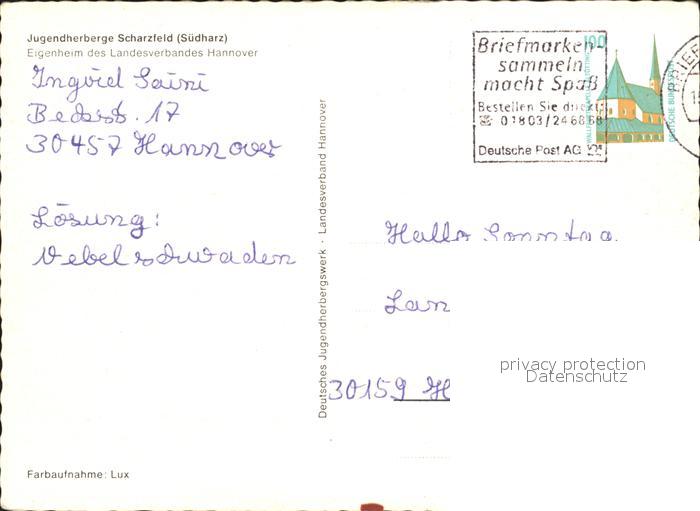 Jugendherberge Scharzfeld (Südharz)
Eigenheim des Landesverbandes Hannover
Ingrid Saini
Bedstr. 17
30457 Hannover
Lösung:
Nebelschwaden
Farbaufnahme: Lux
Deutsches Jugendherbergswerk · Landesverband Hannover
Briefmarken-
sammeln
macht Spaß
Bestellen Sie direkt:
☏ 01803/246868
Deutsche Post AG
100
DEUTSCHE BUNDESPOST
BRIEF
Hallo Sonntag
Lan
30159 H
privacy protection
Datenschutz